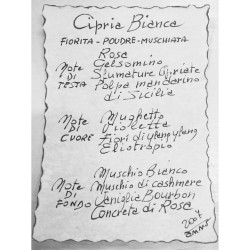 Cipria Bianca
FIORITA - POUDRÉ - MUSCHIATA
Rosa
Note Gelsomino
DI Sfumature Cipriate
TESTA Polpa mandarino
di Sicilia
Note Mughetto
DI Violetta
CUORE Fiori di Ylang Ylang
Eliotropio
Muschio Bianco
Note Muschio di cashmere
DI Vaniglia Bourbon
FONDO Concreta di Rosa
2007